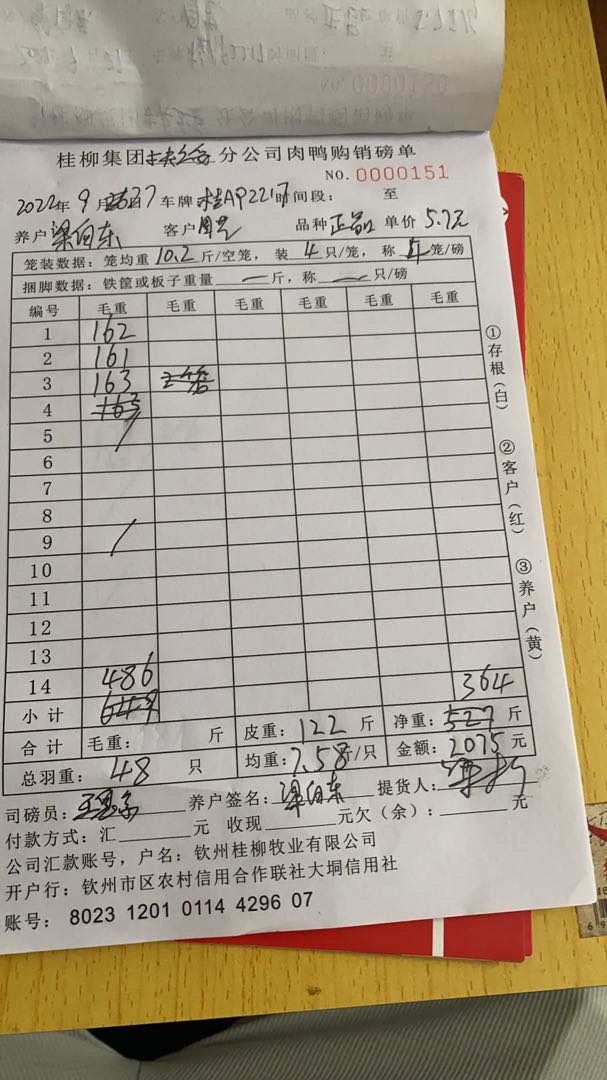 NO.0000150
桂柳集团 分公司肉鸭购销磅单
NO. 0000151
2022年 9月 27 车牌 桂AP2217 时间段： 至
养户 梁向东 客户 周芒 品种 正品 单价 5.7元
笼装数据：笼均重 10.2 斤/空笼，装 4 只/笼，称 4 笼/磅
捆脚数据：铁筐或板子重量 — 斤，称 — 只/磅
编号 毛重 毛重 毛重 毛重 毛重 毛重
1 162
2 161
3 163
4 163
5
6
7
8
9
10
11
12
13
14 486 364
小计 649
合计 毛重： 斤 皮重：122 斤 净重：527 斤
总羽重：48 只 均重：7.58斤/只 金额：2075 元
司磅员： 养户签名：梁向东 提货人：
付款方式：汇 元 收现 元欠（余）： 元
公司汇款账号，户名：钦州桂柳牧业有限公司
开户行：钦州市区农村信用合作联社大垌信用社
账号：8023 1201 0114 4296 07
①存根（白）
②客户（红）
③养户（黄）